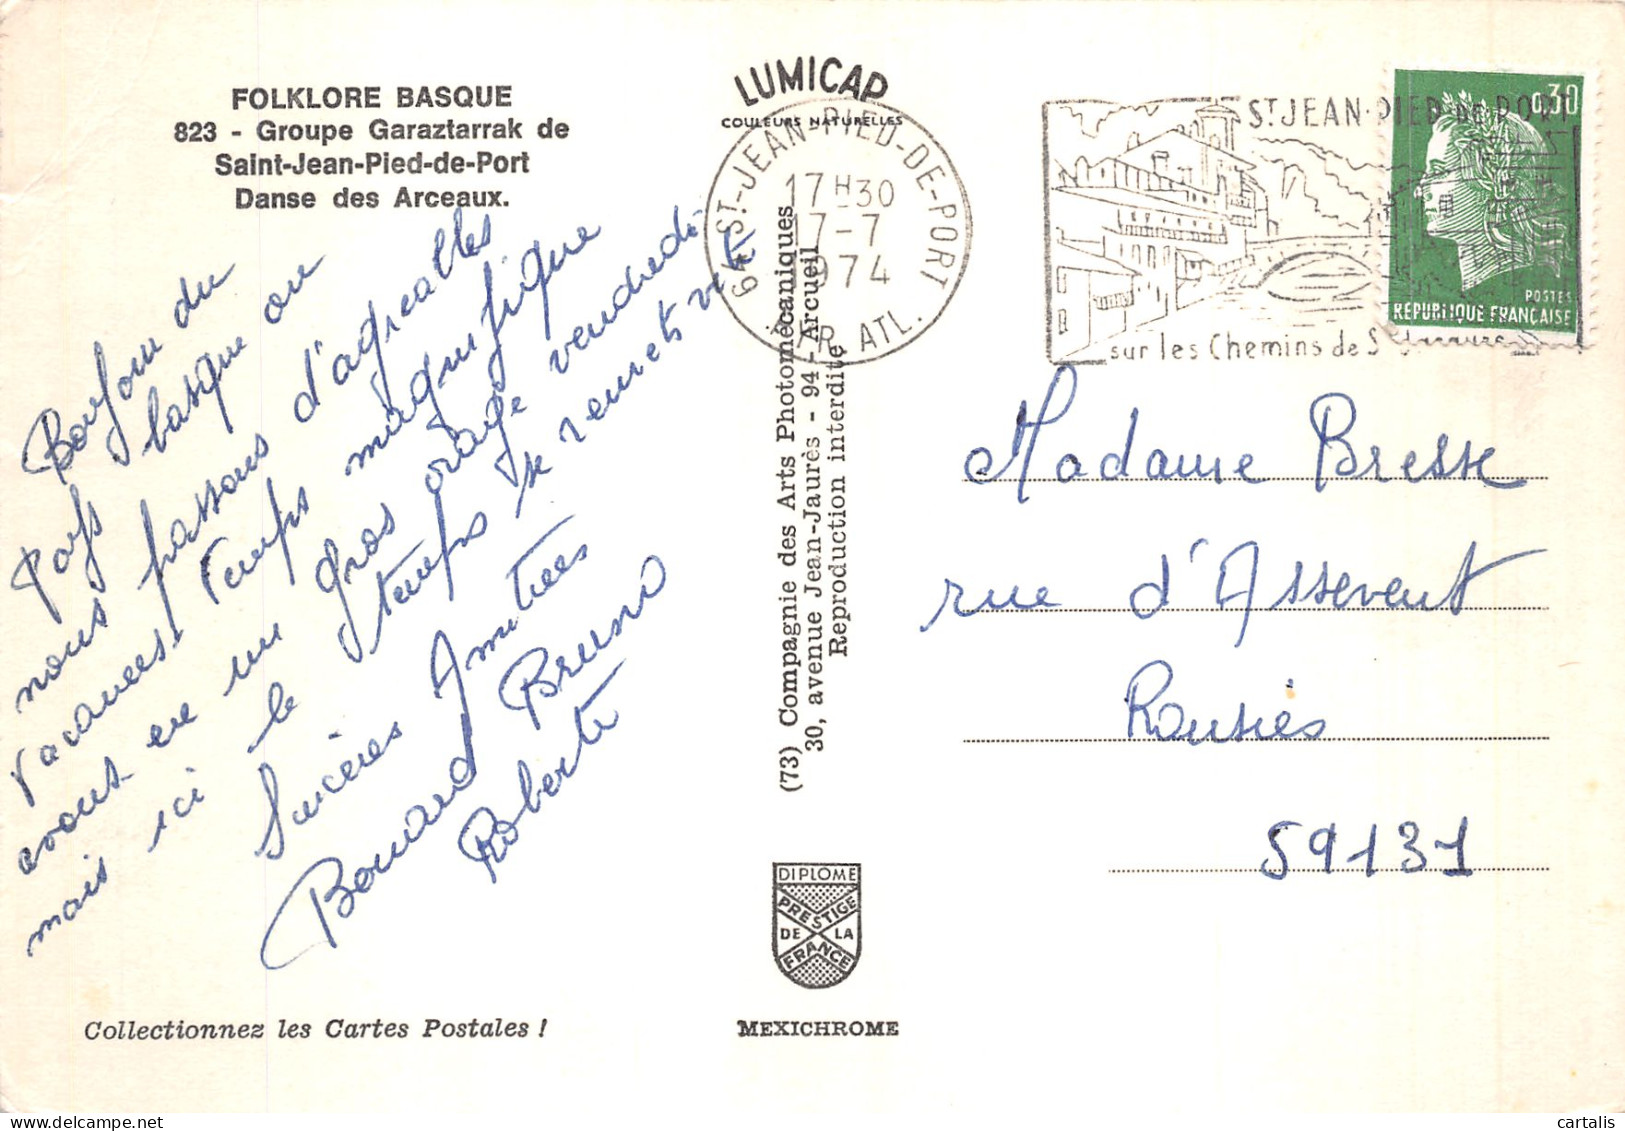 FOLKLORE BASQUE
823 - Groupe Garaztarrak de
Saint-Jean-Pied-de-Port
Danse des Arceaux.
Bonjour du
Pays basque ou
nous passons d'agréables
vacances Temps magnifique
avons eu un gros orage vendredi
mais ici le temps se remets vite
Sincères Amitiées
Bouard Bruno
Roberte
Collectionnez les Cartes Postales !
LUMICAP
COULEURS NATURELLES
64 ST-JEAN-PIED-DE-PORT
17H30
17-7
1974
PYR. ATL.
(73) Compagnie des Arts Photomécaniques
30, avenue Jean-Jaurès - 94 - Arcueil
Reproduction interdite
DIPLOME
PRESTIGE
DE LA
FRANCE
MEXICHROME
ST JEAN-PIED DE PORT
sur les Chemins de St Jacques
0,30
POSTES
REPUBLIQUE FRANÇAISE
Madame Bresse
rue d'Assevent
Rousies
59131
cartalis